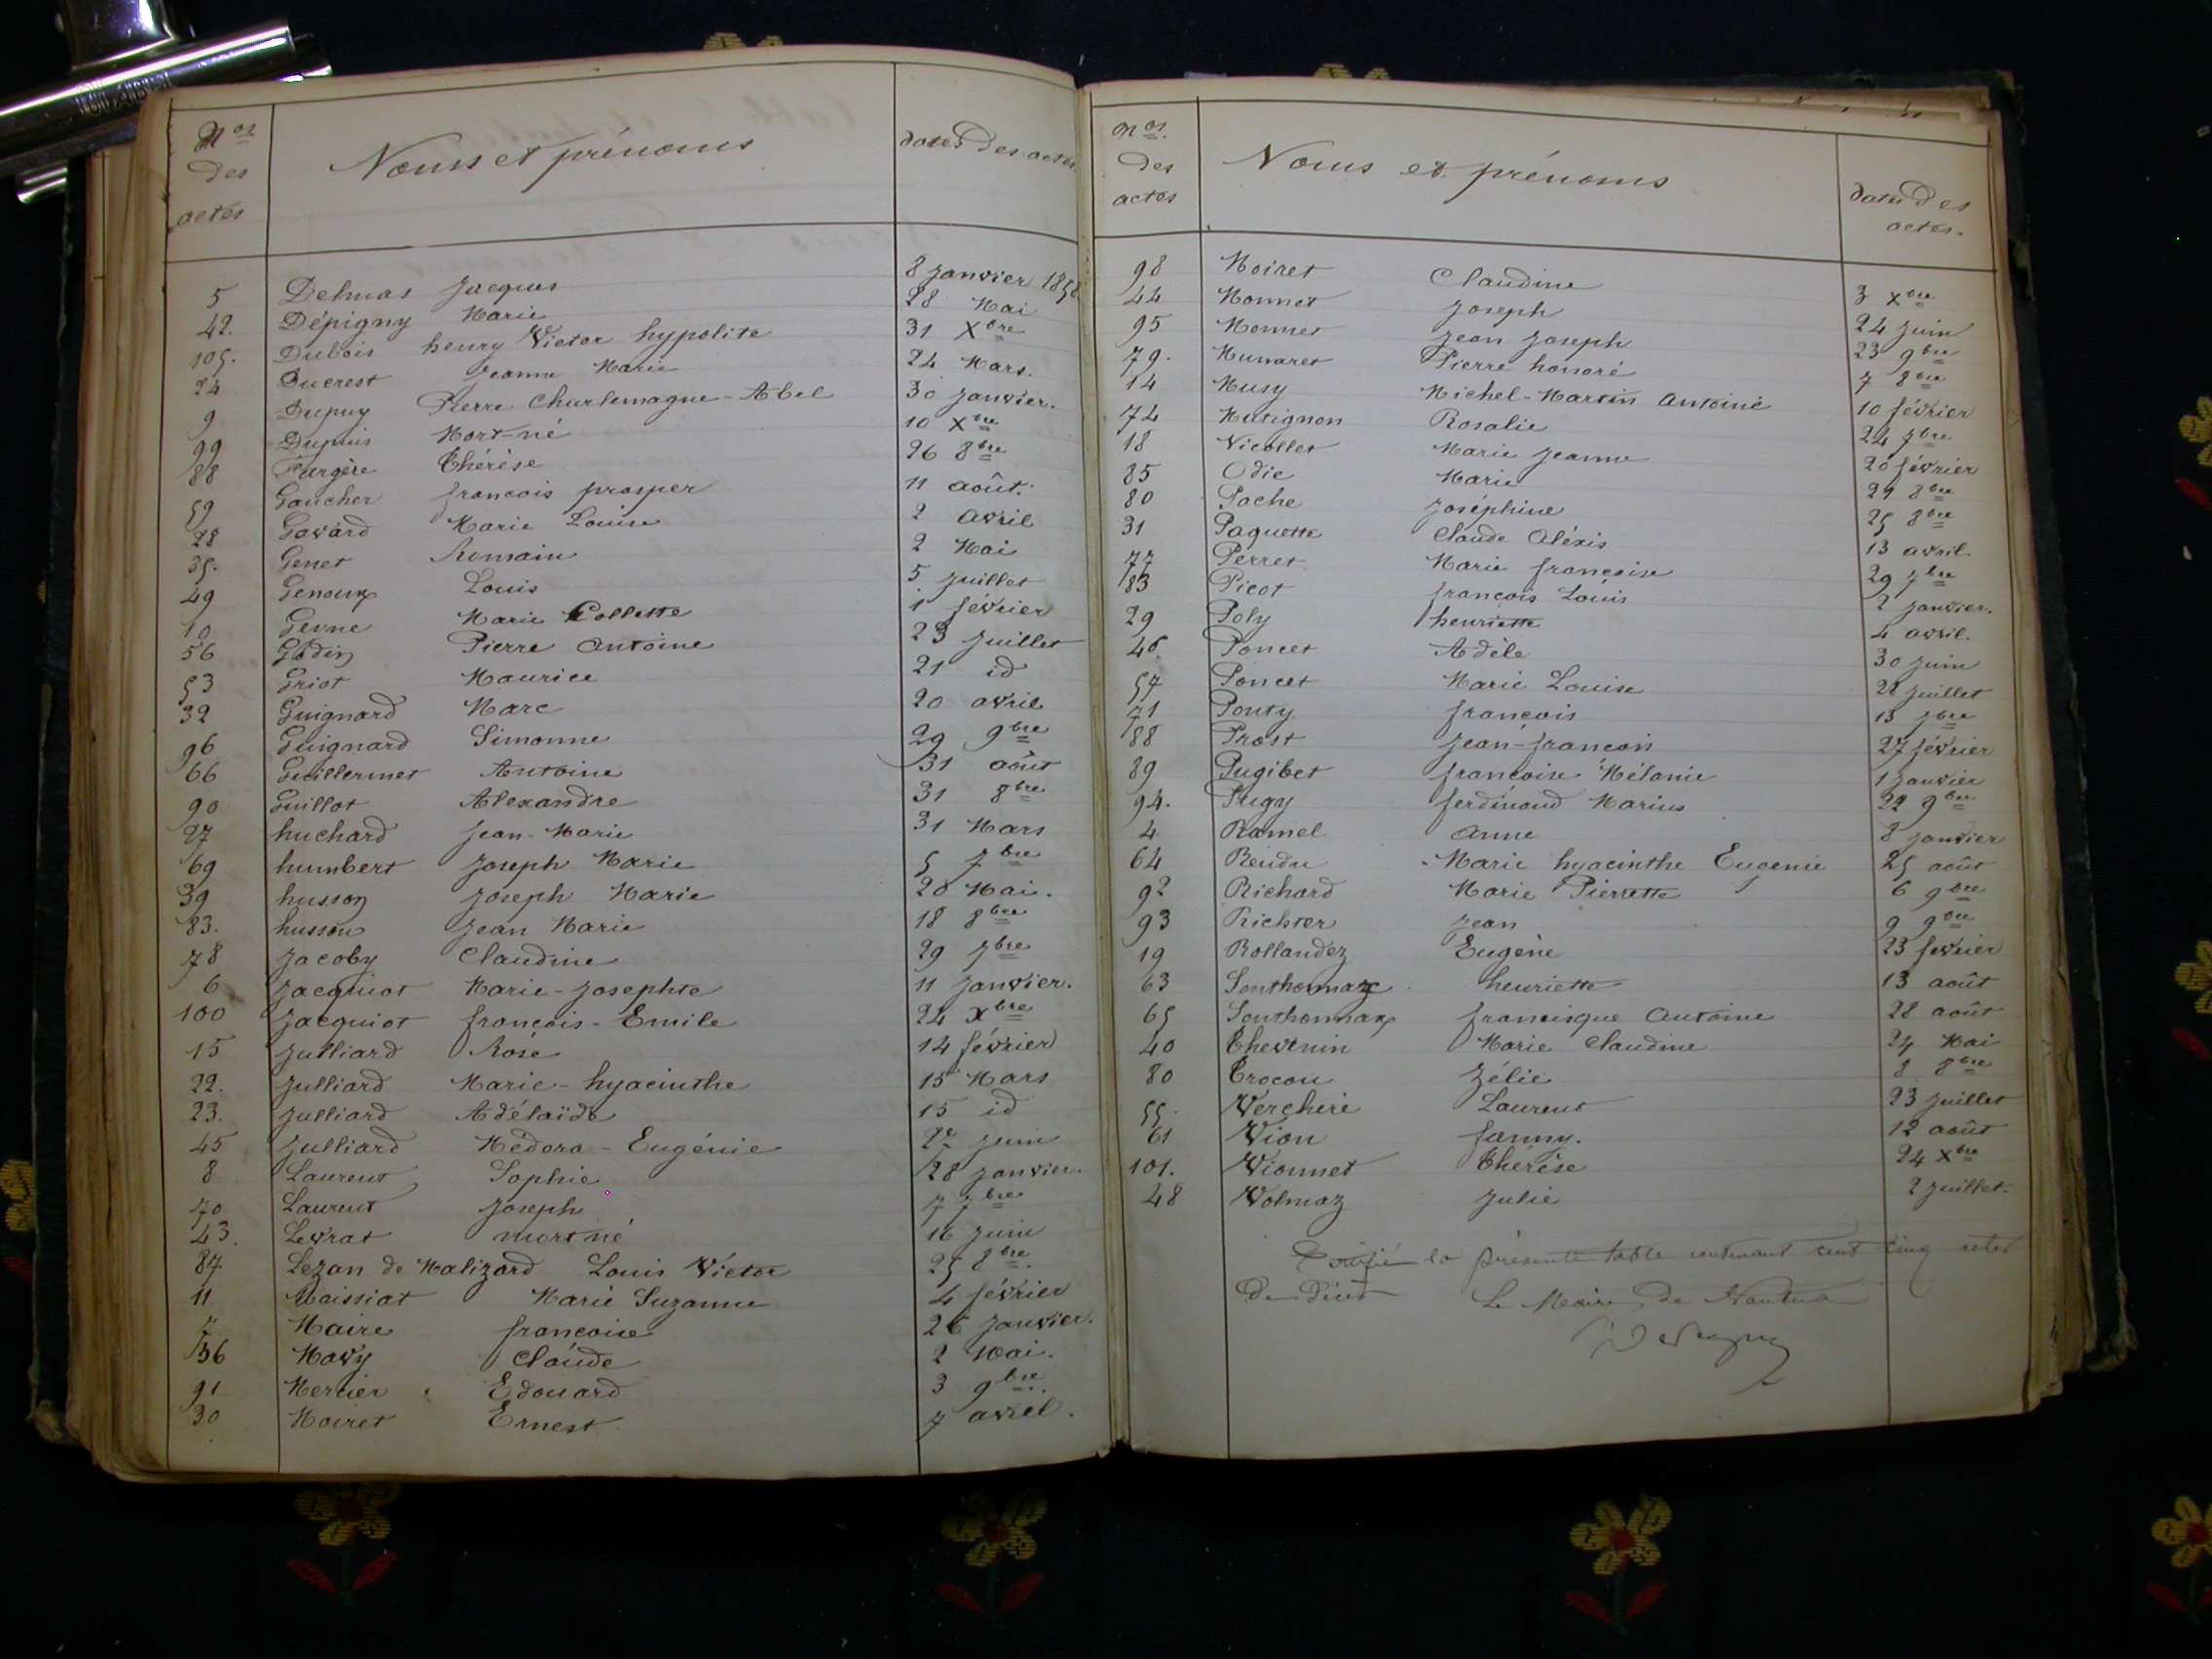 Nos des actes Noms et prénoms dates des actes
5 Delmas Jacques 8 Janvier 1858
42. Dépigny Marie 28 Mai
105. Dubois henry Victor hypolite 31 Xbre
24 Ducrest Jeanne Marie 24 Mars.
9 Dupuy Pierre Charlemagne-Abel 30 Janvier.
99 Dupuis Mort-né 10 Xbre
88 Fargère Thérèse 26 8bre
59 Gaucher françois prosper 11 août.
28 Gavard Marie Louise 2 avril
35. Genet Romain 2 Mai
49 Genoux Louis 5 Juillet
10 Gevne Marie Collette 1 février
56 Godin Pierre Antoine 23 Juillet
53 Griot Maurice 21 id
32 Guignard Marc 20 avril
96 Guignard Simonne 29 9bre
66 Guillermet Antoine 31 août
90 Guillot Alexandre 31 8bre
27 huchard Jean-Marie 31 Mars
69 humbert Joseph Marie 5 7bre
39 husson Joseph Marie 20 Mai.
83. husson Jean Marie 18 8bre
78 Jacoby Claudine 29 7bre
6 Jacquiot Marie-Josephte 11 Janvier.
100 Jacquiot françois-Emile 24 Xbre
15 Julliard Rose 14 février
22. Julliard Marie-hyacinthe 15 Mars
23. Julliard Adélaïde 15 id
45 Julliard Médora-Eugénie Juin
8 Laurent Sophie 28 Janvier.
70 Laurent Joseph 7 7bre
43. Levrat mort né 16 Juin
87 Lezan de Malizard Louis Victor 25 8bre.
11 Maissiat Marie Suzanne 4 février
7 Maire françoise 26 Janvier.
36 Mavy Claude 2 Mai.
91 Mercier Edouard 3 9bre.
30 Moiret Ernest 7 avril.
Nos. des actes Noms et prénoms dates des actes.
98 Moiret Claudine 3 Xbre
44 Monnet Joseph 24 Juin
95 Monnet Jean Joseph 23 9bre
79. Munaret Pierre honoré 7 8bre
14 Musy Michel-Martin Antoine 10 février
74 Mutignon Rosalie 24 7bre
18 Nicollet Marie Jeanne 20 février
85 Odie Marie 21 8bre
80 Pache Joséphine 25 8bre
31 Paquette Claude Aléxis 13 avril.
77 Perret Marie françoise 29 7bre
83 Picot françois Louis 2 Janvier.
29 Poly henriette 4 avril.
46 Poncet Adèle 30 Juin
57 Poncet Marie Louise 28 Juillet
71 Pouty françois 13 7bre
88 Prost Jean-françois 27 février
89 Pugibet françoise Mélanie 1 Janvier
94. Pugy ferdinand Marius 22 9bre
4 Ramel Anne 8 Janvier
64 Rendu Marie hyacinthe Eugenie 25 août
92 Richard Marie Pierrette 6 9bre
93 Richter Jean 9 9bre
19 Rollandez Eugène 23 février
63 Sonthonnax henriette 13 août
65 Sonthonnax francisque Antoine 28 août
40 Thevenin Marie Claudine 24 Mai
80 Trocon Zélie 8 8bre
55. Verchère Laurent 23 Juillet
61 Vion fanny. 12 août
101. Vionnet Thérèse 24 Xbre
48 Volmaz Julie 2 Juillet.
Certifié la présente table contenant cent cinq actes
De Décès Le Maire de Nantua